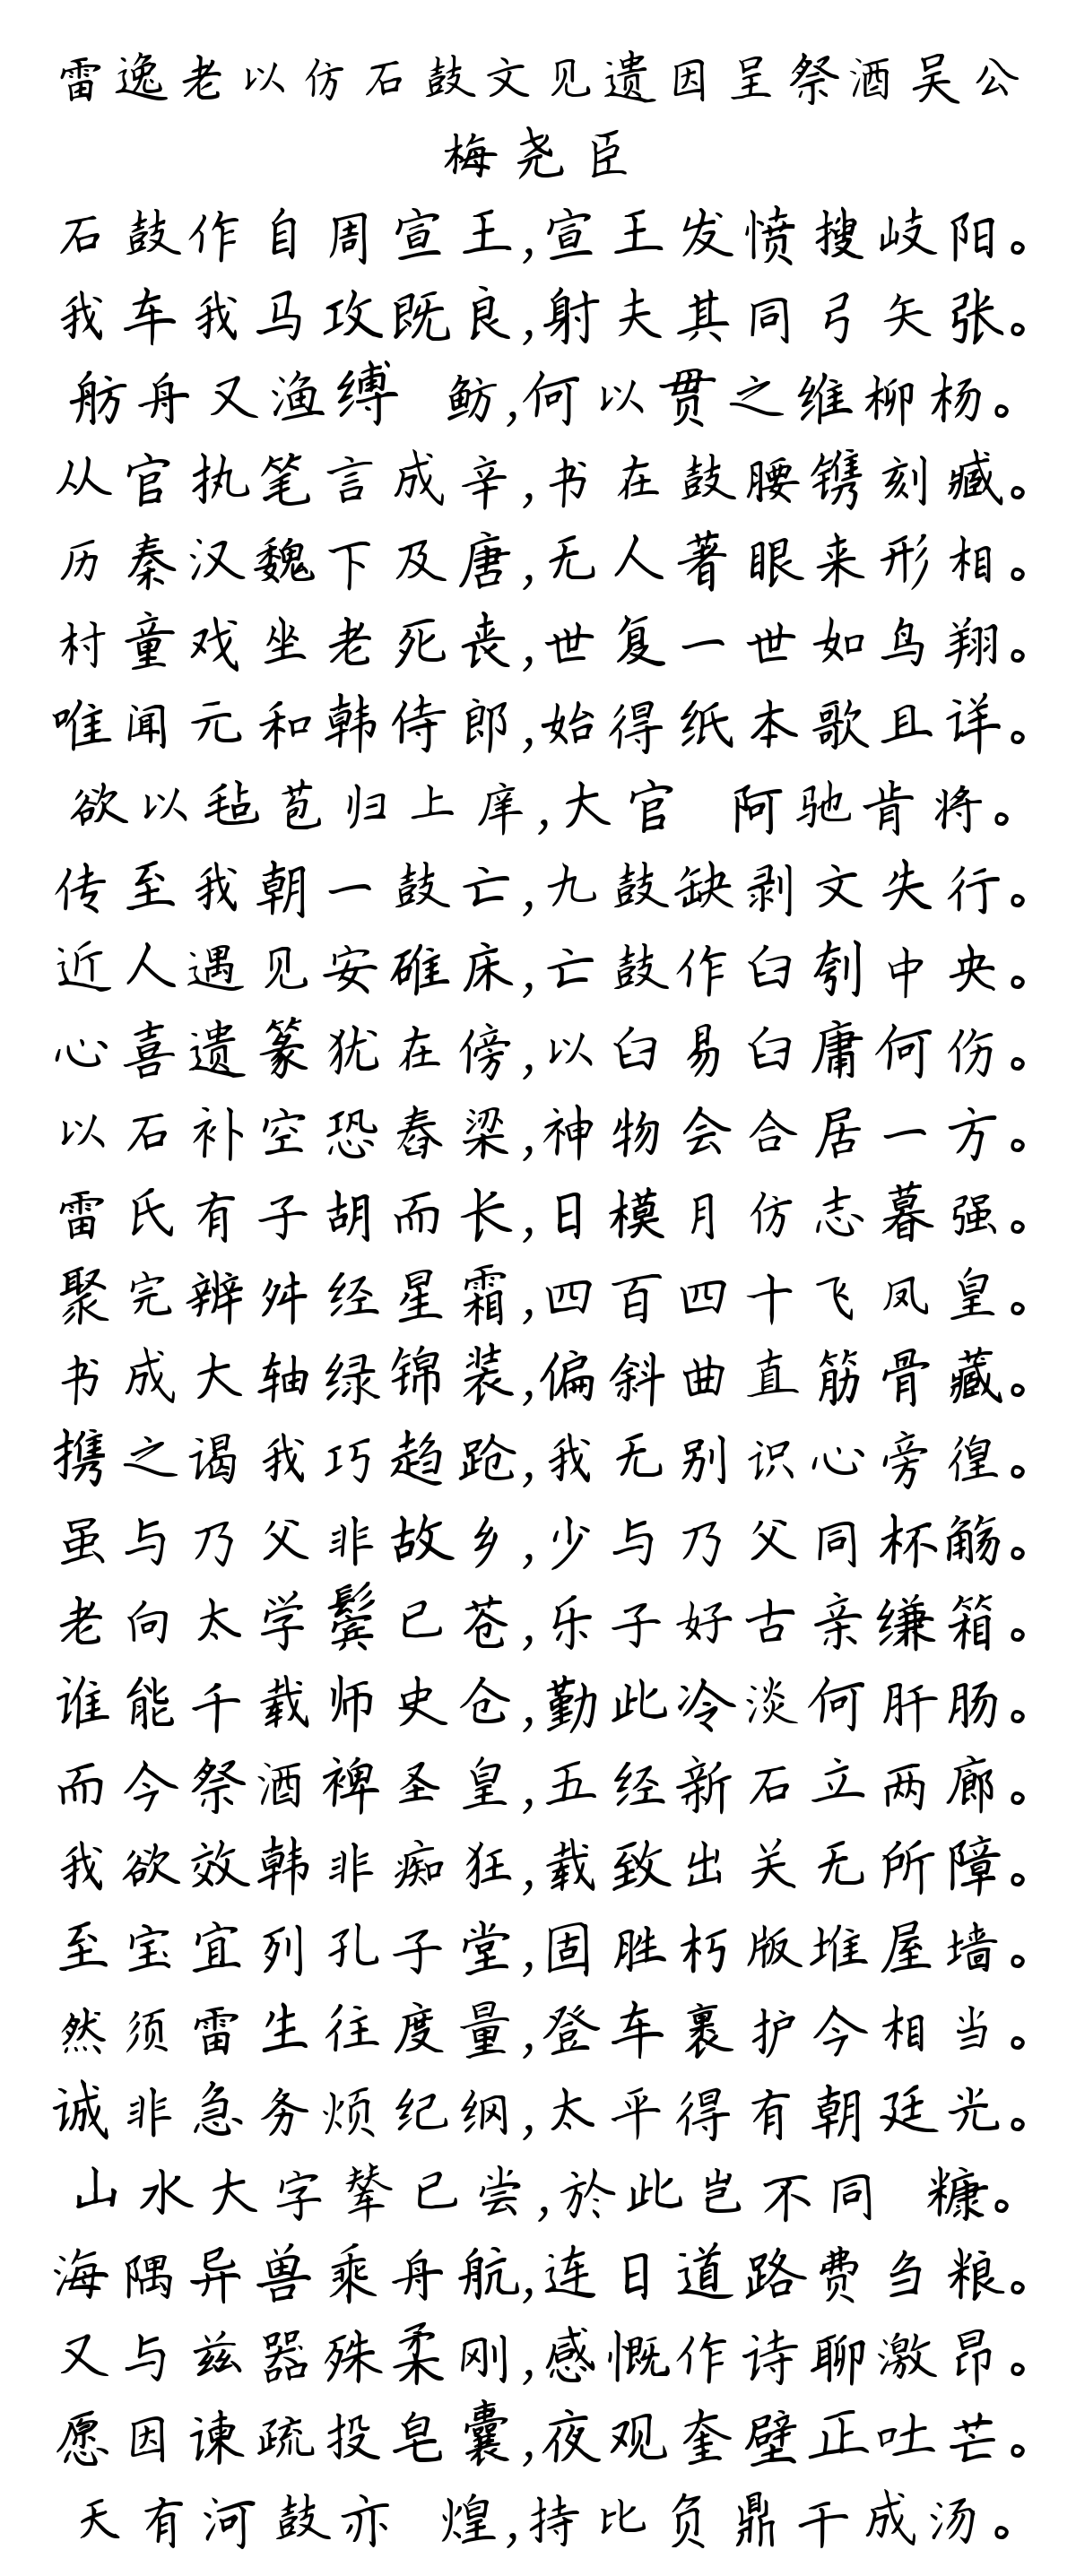 雷逸老以仿石鼓文见遗因呈祭酒吴公
梅尧臣
石鼓作自周宣王,宣王发愤搜岐阳。
我车我马攻既良,射夫其同弓矢张。
舫舟又渔缚 鲂,何以贯之维柳杨。
从官执笔言成辛,书在鼓腰镌刻臧。
历秦汉魏下及唐,无人著眼来形相。
村童戏坐老死丧,世复一世如鸟翔。
唯闻元和韩侍郎,始得纸本歌且详。
欲以毡苞归上庠,大官 阿驰肯将。
传至我朝一鼓亡,九鼓缺剥文失行。
近人遇见安碓床,亡鼓作臼刳中央。
心喜遗篆犹在傍,以臼易臼庸何伤。
以石补空恐舂梁,神物会合居一方。
雷氏有子胡而长,日模月仿志暮强。
聚完辨舛经星霜,四百四十飞凤皇。
书成大轴绿锦装,偏斜曲直筋骨藏。
携之谒我巧趋跄,我无别识心旁徨。
虽与乃父非故乡,少与乃父同杯觞。
老向太学鬓已苍,乐子好古亲缣箱。
谁能千载师史仓,勤此冷淡何肝肠。
而今祭酒裨圣皇,五经新石立两廊。
我欲效韩非痴狂,载致出关无所障。
至宝宜列孔子堂,固胜朽版堆屋墙。
然须雷生往度量,登车裹护今相当。
诚非急务烦纪纲,太平得有朝廷光。
山水大字辇已尝,於此岂不同 糠。
海隅异兽乘舟航,连日道路费刍粮。
又与兹器殊柔刚,感慨作诗聊激昂。
愿因谏疏投皂囊,夜观奎壁正吐芒。
天有河鼓亦 煌,持比负鼎干成汤。